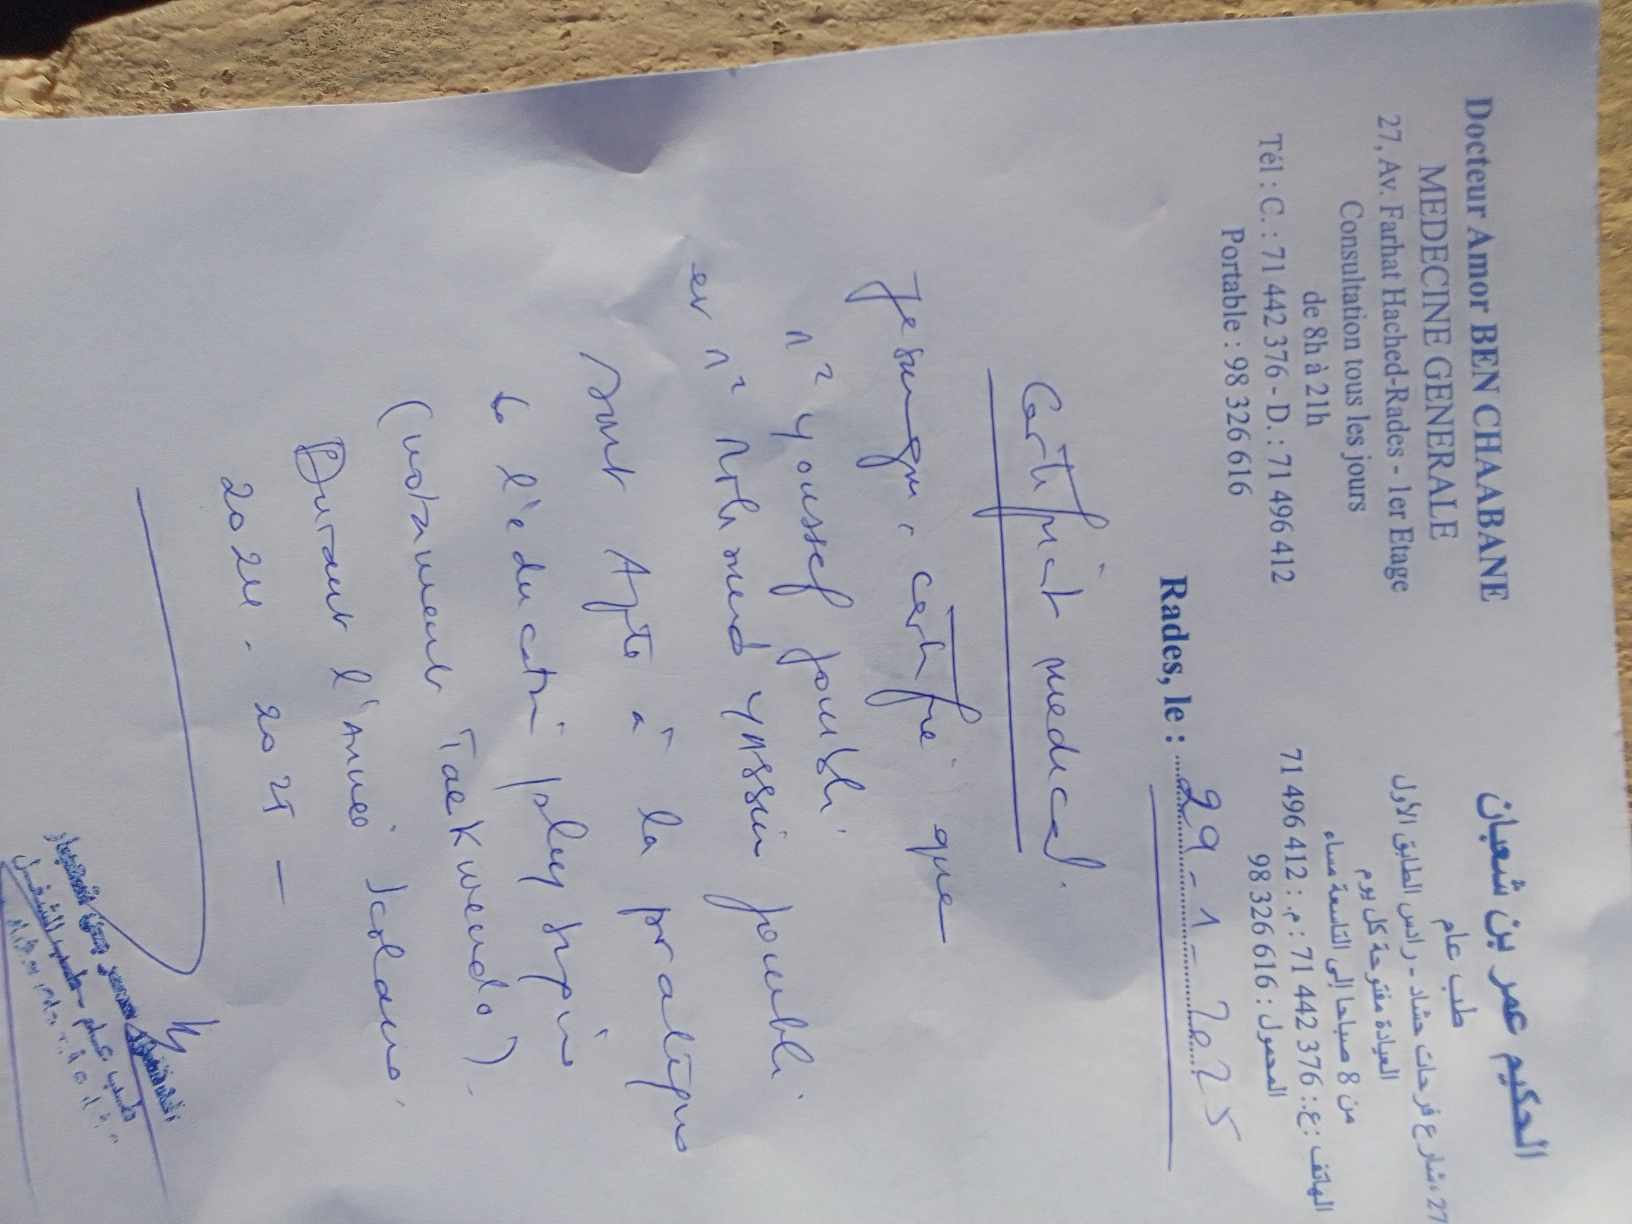 Docteur Amor BEN CHAABANE
MEDECINE GENERALE
27, Av. Farhat Hached-Rades - 1er Etage
Consultation tous les jours
de 8h à 21h
Tél : C. : 71 442 376 - D. : 71 496 412
Portable : 98 326 616
الحكيم عمر بن شعبان
طب عام
27، شارع فرحات حشاد - رادس الطابق الأول
العيادة مفتوحة كل يوم
من 8 صباحا إلى التاسعة مساء
الهاتف : ع. : 71 442 376 : م. : 71 496 412
المحمول : 98 326 616
Rades, le : 29-1-2025
Certificat medical.
Je soussigné, certifie que
youssef
et yassin
sont Apte à la pratique
de l'education physique
(notament Taekwendo).
Durant l'Année Scolaire
2024 - 2025 -
طب عام - طب الشغل